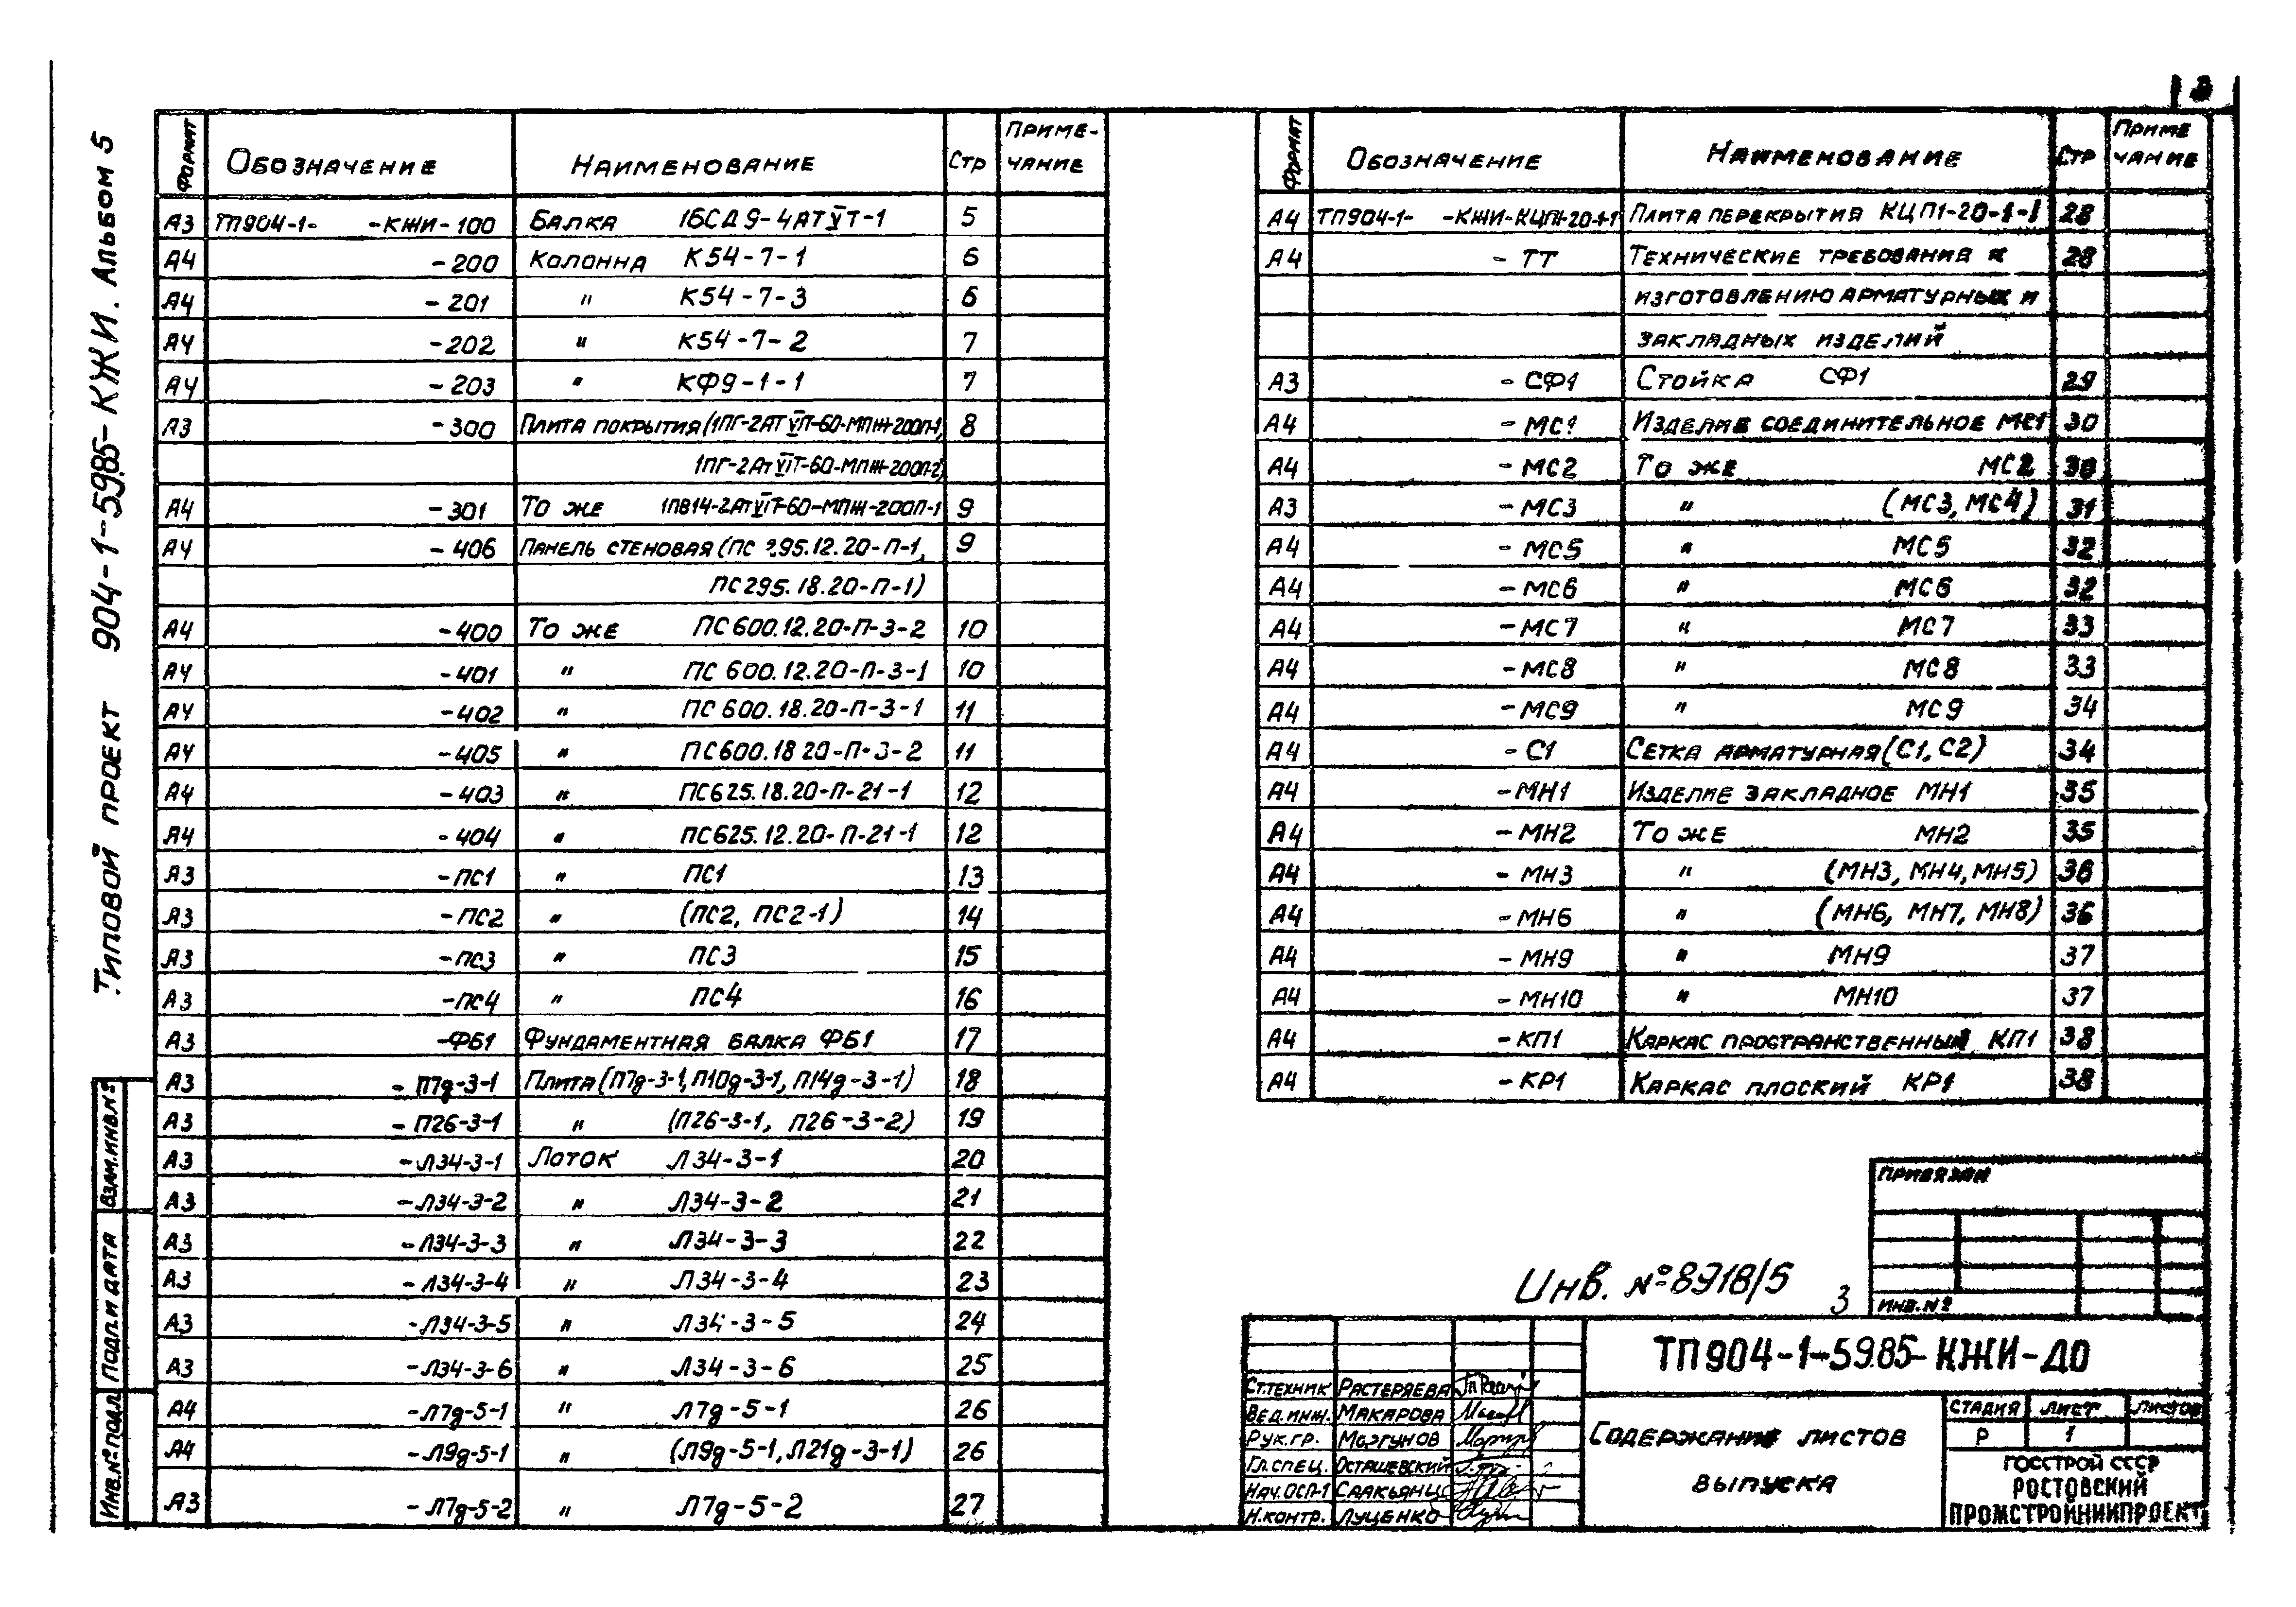 3
Типовой проект 904-1-59.85-КЖИ. Альбом 5
Формат Обозначение Наименование Стр Приме-чание
А3 ТП904-1- -КЖИ-100 Балка 1БСД9-4АТVТ-1 5
А4 -200 Колонна К54-7-1 6
А4 -201 " К54-7-3 6
А4 -202 " К54-7-2 7
А4 -203 " КФ9-1-1 7
А3 -300 Плита покрытия (1ПГ-2АТVIТ-60-МПЖ-200П-1, 8
1ПГ-2АтVIТ-60-МПЖ-200П-2)
А4 -301 То же 1ПВ14-2АтVIТ-60-МПЖ-200П-1 9
А4 -406 Панель стеновая (ПС 295.12.20-П-1, 9
ПС295.18.20-П-1)
А4 -400 То же ПС600.12.20-П-3-2 10
А4 -401 " ПС 600.12.20-П-3-1 10
А4 -402 " ПС 600.18.20-П-3-1 11
А4 -405 " ПС600.18 20-П-3-2 11
А4 -403 " ПС625.18.20-П-21-1 12
А4 -404 " ПС625.12.20-П-21-1 12
А3 -ПС1 " ПС1 13
А3 -ПС2 " (ПС2, ПС2-1) 14
А3 -ПС3 " ПС3 15
А3 -ПС4 " ПС4 16
А3 -ФБ1 Фундаментная балка ФБ1 17
А3 -П7д-3-1 Плита (П7д-3-1, П10д-3-1, П14д-3-1) 18
А3 -П26-3-1 " (П26-3-1, П26-3-2) 19
А3 -Л34-3-1 Лоток Л34-3-1 20
А3 -Л34-3-2 " Л34-3-2 21
А3 -Л34-3-3 " Л34-3-3 22
А3 -Л34-3-4 " Л34-3-4 23
А3 -Л34-3-5 " Л34-3-5 24
А3 -Л34-3-6 " Л34-3-6 25
А4 -Л7д-5-1 " Л7д-5-1 26
А4 -Л9д-5-1 " (Л9д-5-1, Л21д-3-1) 26
А3 -Л7д-5-2 " Л7д-5-2 27
Формат Обозначение Наименование Стр Приме чание
А4 ТП904-1- -КЖИ-КЦП1-20-1-1 Плита перекрытия КЦП1-20-1-1 28
А4 -ТТ Технические требования к 28
изготовлению арматурных и
закладных изделий
А3 -СФ1 Стойка СФ1 29
А4 -МС1 Изделие соединительное МС1 30
А4 -МС2 То же МС2 30
А3 -МС3 " (МС3, МС4) 31
А4 -МС5 " МС5 32
А4 -МС6 " МС6 32
А4 -МС7 " МС7 33
А4 -МС8 " МС8 33
А4 -МС9 " МС9 34
А4 -С1 Сетка арматурная (С1, С2) 34
А4 -МН1 Изделие закладное МН1 35
А4 -МН2 То же МН2 35
А4 -МН3 " (МН3, МН4, МН5) 36
А4 -МН6 " (МН6, МН7, МН8) 36
А4 -МН9 " МН9 37
А4 -МН10 " МН10 37
А4 -КП1 Каркас пространственный КП1 38
А4 -КР1 Каркас плоский КР1 38
Взам.инв.№
Подп. и дата
Инв.№ подл.
Привязан
Инв.№
Инв. № 8918/5
3
ТП 904-1-59.85-КЖИ-ДО
Ст.техник Растеряева
Вед.инж. Макарова
Рук.гр. Моргунов
Гл.спец. Осташевский
Нач.ОСП-1 Саакьянц
Н.контр. Луценко
Содержание листов
выпуска
Стадия Лист Листов
Р 1
Госстрой СССР
Ростовский
Промстройниипроект